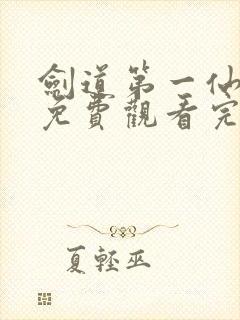 劍道第一仙
免費觀看完
夏輕巫